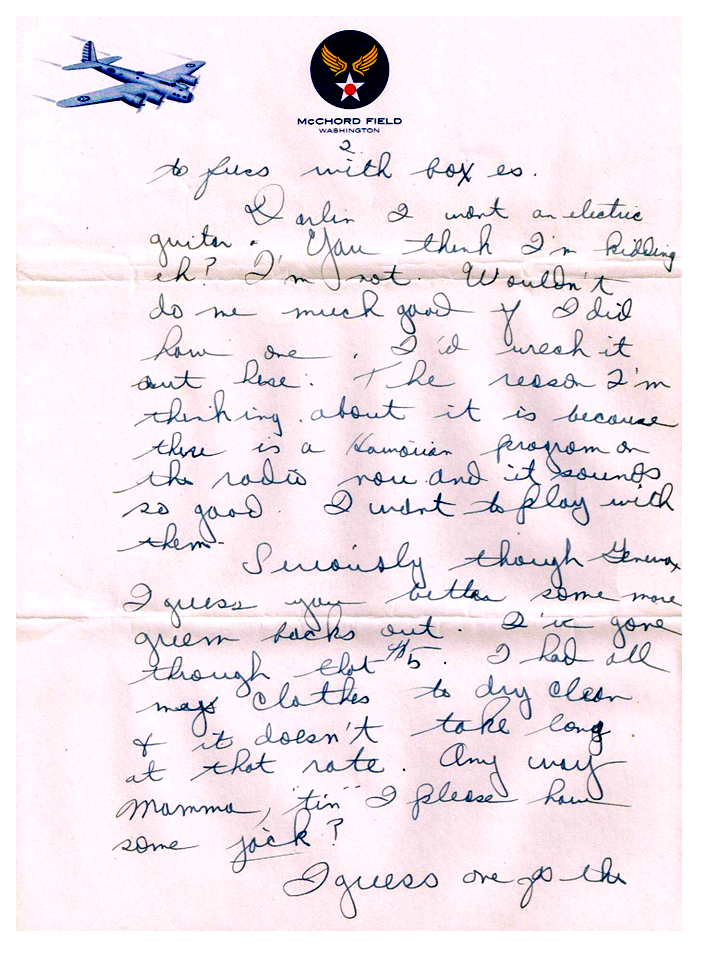 McCHORD FIELD
WASHINGTON
2.
to fuss with box es.
Darlin I want an electric
guitar. You think I'm kidding
eh? I'm not. Wouldn't
do me much good if I did
have one. I'd wreck it
out here. The reason I'm
thinking about it is because
there is a Hawaiian program on
the radio now and it sounds
so good. I want to play with
them.
Seriously though Geneva,
I guess you better some more
green backs out. I've gone
though that $5. I had all
my clothes to dry clean
& it doesn't take long
at that rate. Any way
Mamma, "tin" I please have
some jack?
I guess one of the